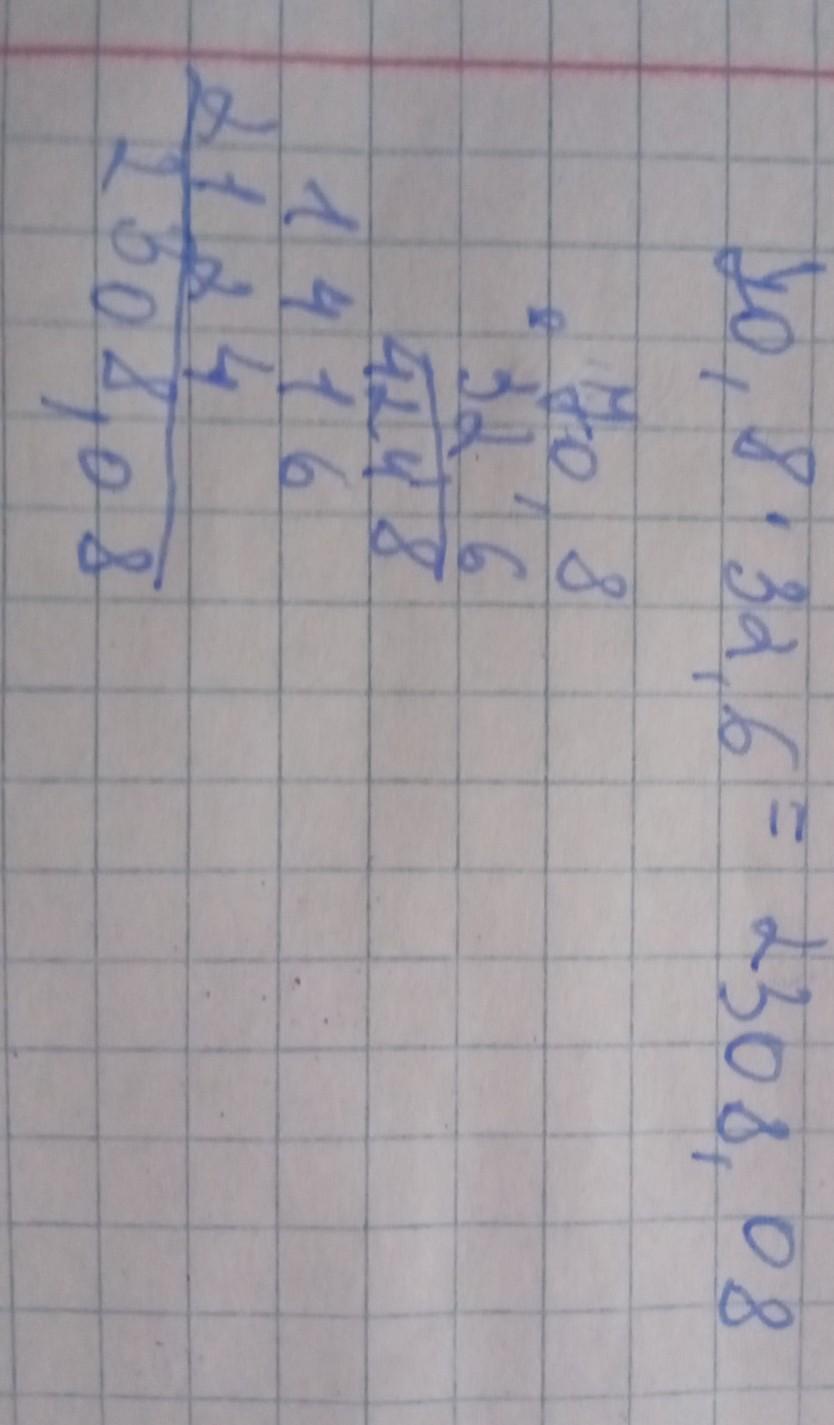 70,8 · 32,6 = 2308,08
70,8
· 32 6
4248
1416
2124
2308,08